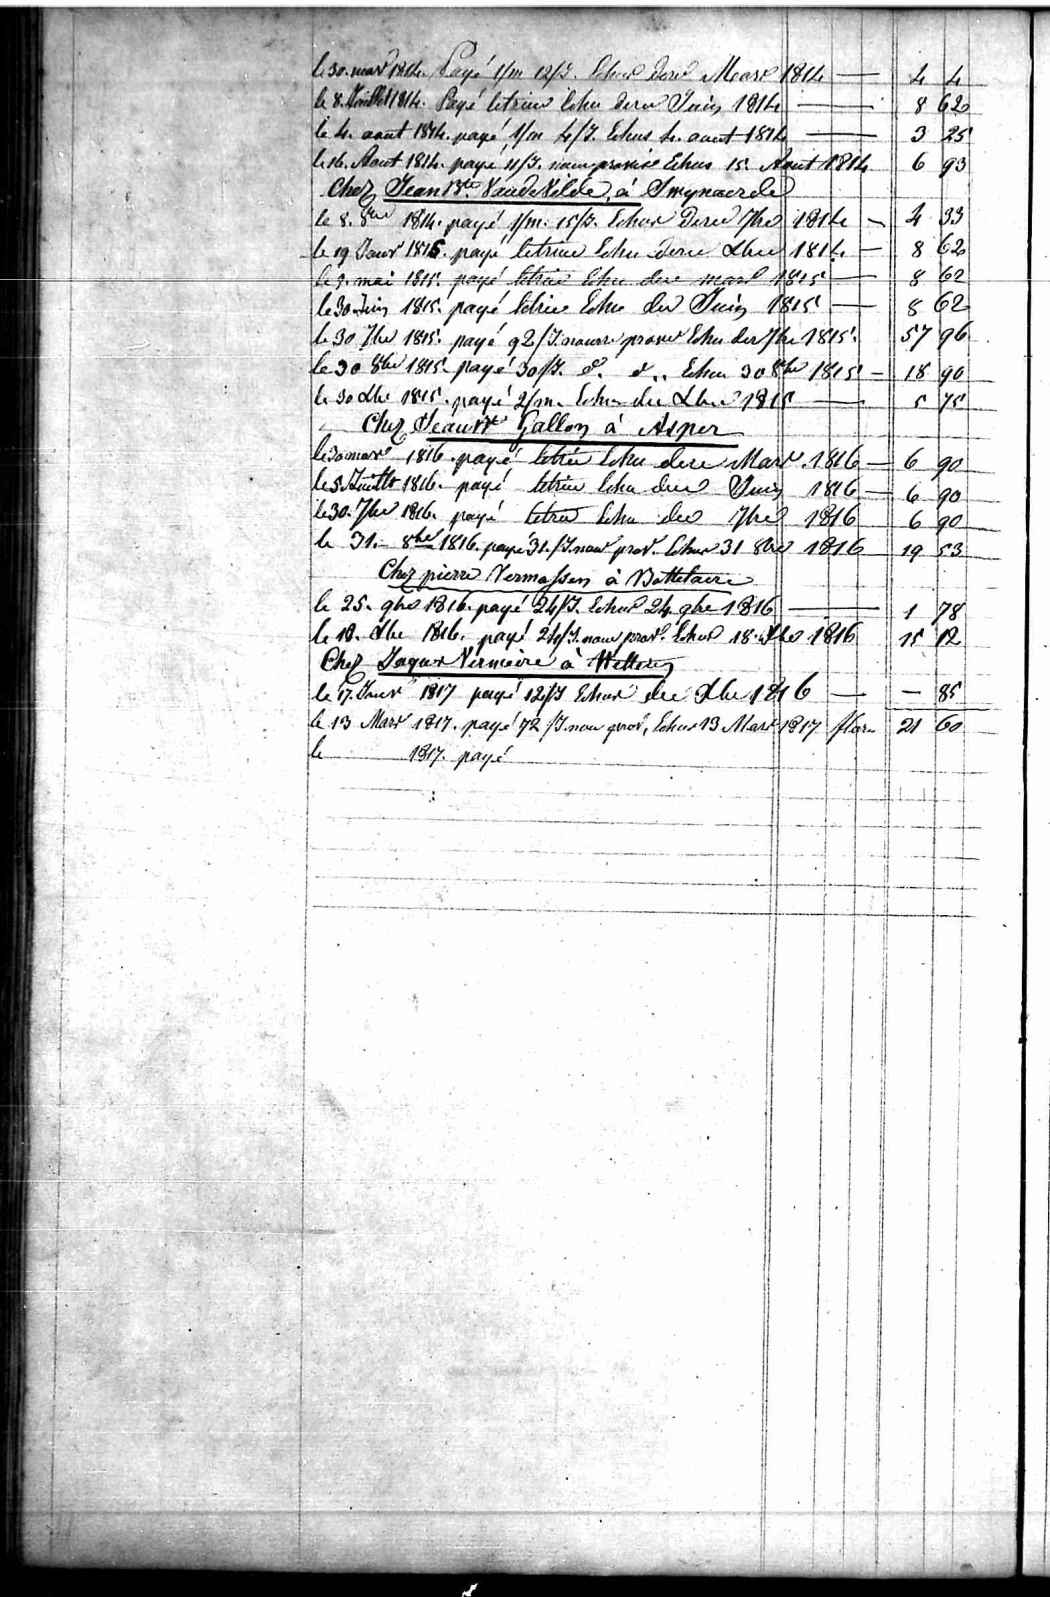 le 30. mars 1814. Payé 1/m 12/J. Echus dere Mars 1814 — 4 4
le 8. Juillet 1814. Payé letrim Echu dere Juin 1814 — 8 62
le 4. aout 1814. payé 1/m 4/J. Echus 4. aout 1814 — 3 25
le 16. Aout 1814. payé 11/J. nouv provise Echus 15. Aout 1814 6 93
Chez Jean Bte. Vande Velde, à Swynaerde
le 8. 8bre 1814. payé 1/m. 15/J. Echus dere 7bre 1814 — 4 33
le 19 Janvr 1815. payé letrim Echu dere Xbre 1814 — 8 62
le 3. mai 1815. payé letrim Echu dere mars 1815 — 8 62
le 30. Juin 1815. payé letrim Echu der Juin 1815 — 8 62
le 30 7bre 1815. payé 92/J. nourre provr Echu der 7bre 1815. 57 96
le 30 8bre 1815. payé 30/J. do. do.. Echu 30 8bre 1815 — 18 90
le 30 Xbre 1815. payé 2/m. Echus der Xbre 1815 — 5 75
Chez Jean Bte Gallon à Asper
le 30 mars 1816. payé letrim Echu dere Mars. 1816 — 6 90
le 5 Juillt 1816. payé letrim Echu dere Juin 1816 — 6 90
le 30. 7bre 1816. payé letrim Echu der 7bre 1816 6 90
le 31. 8bre 1816. payé 31./J. nour prov. Echus 31 8bre 1816 — 19 53
Chez pierre Vermassen à Bottelaere
le 25. 9bre 1816. payé 24/J. Echus 24. 9bre 1816 — 1 78
le 18. Xbre 1816. payé 24/J. nour prov. Echus 18. Xbre 1816 15 12
Chez Jaques Vermeire à Wetteren
le 17. Janvr 1817 payé 12/J Echus der Xbre 1816 — — 85
le 13 Mars 1817. payé 72/J. nour prov. Echus 13 Mars 1817 flor. 21 60
le 1817. payé